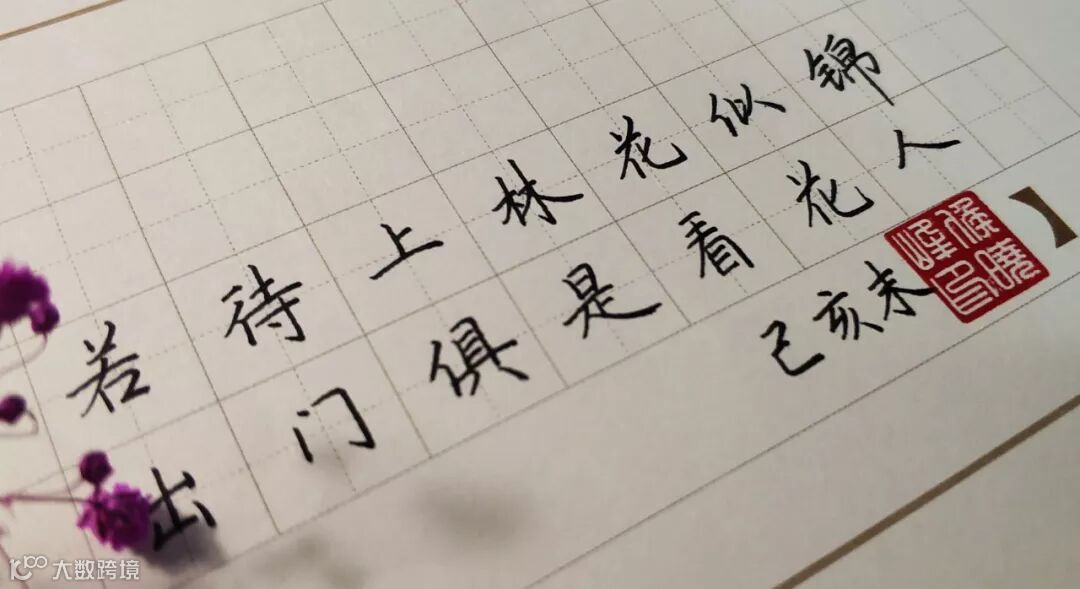 若待上林花似锦
出门俱是看花人
己亥末
】
大数跨境